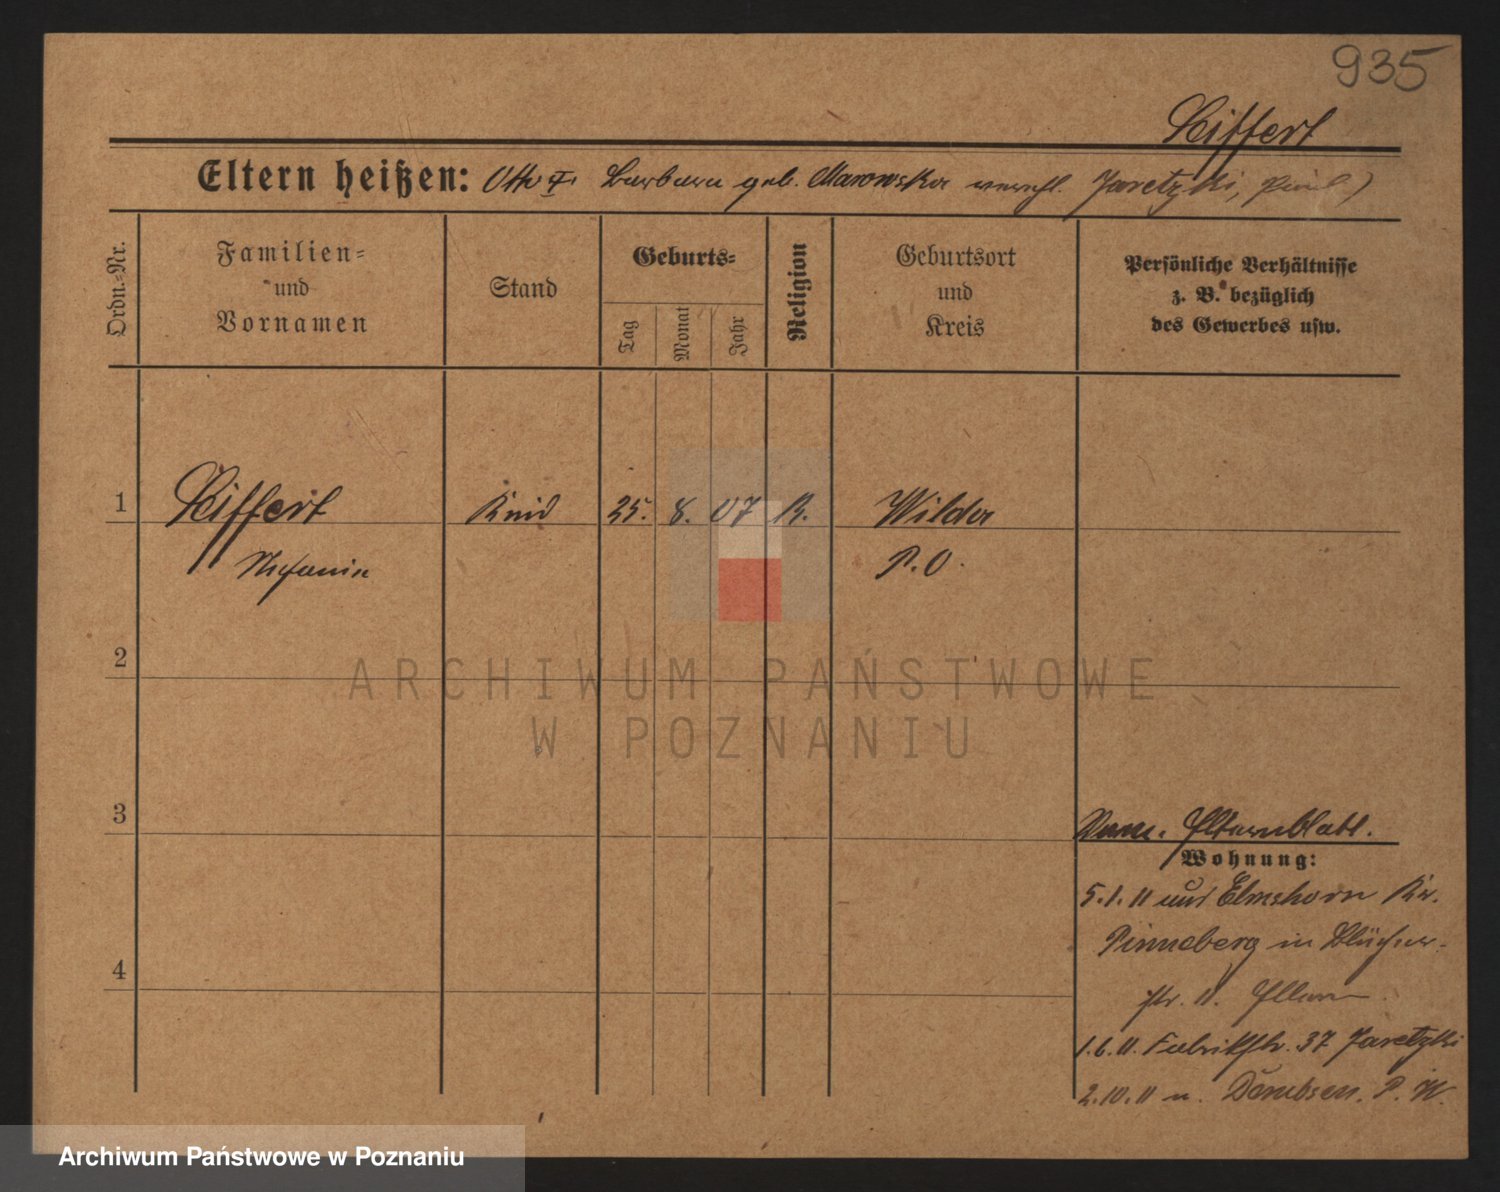 935
Seiffert
Eltern heißen: Otto I. Barbara geb. Marowska verehl. Jaretzki,
Ordn.-Nr.
Familien- und Vornamen
Stand
Geburts-
Tag
Monat
Jahr
Religion
Geburtsort und Kreis
Persönliche Verhältnisse
z. B. bezüglich
des Gewerbes usw.
1
Seiffert
Kind
25.
8.
07
K.
Wilda
Stefanie
P. O.
2
ARCHIWUM PAŃSTWOWE
W POZNANIU
3
Elternblatt.
Wohnung:
5.1.11 Elmshorn Kr.
Pinneberg in Blücher-
str. 11. Eltern
1.6.11. Fabrikstr. 37 Jaretzki
2.10.11 n. Dembsen. P. W.
4
Archiwum Państwowe w Poznaniu